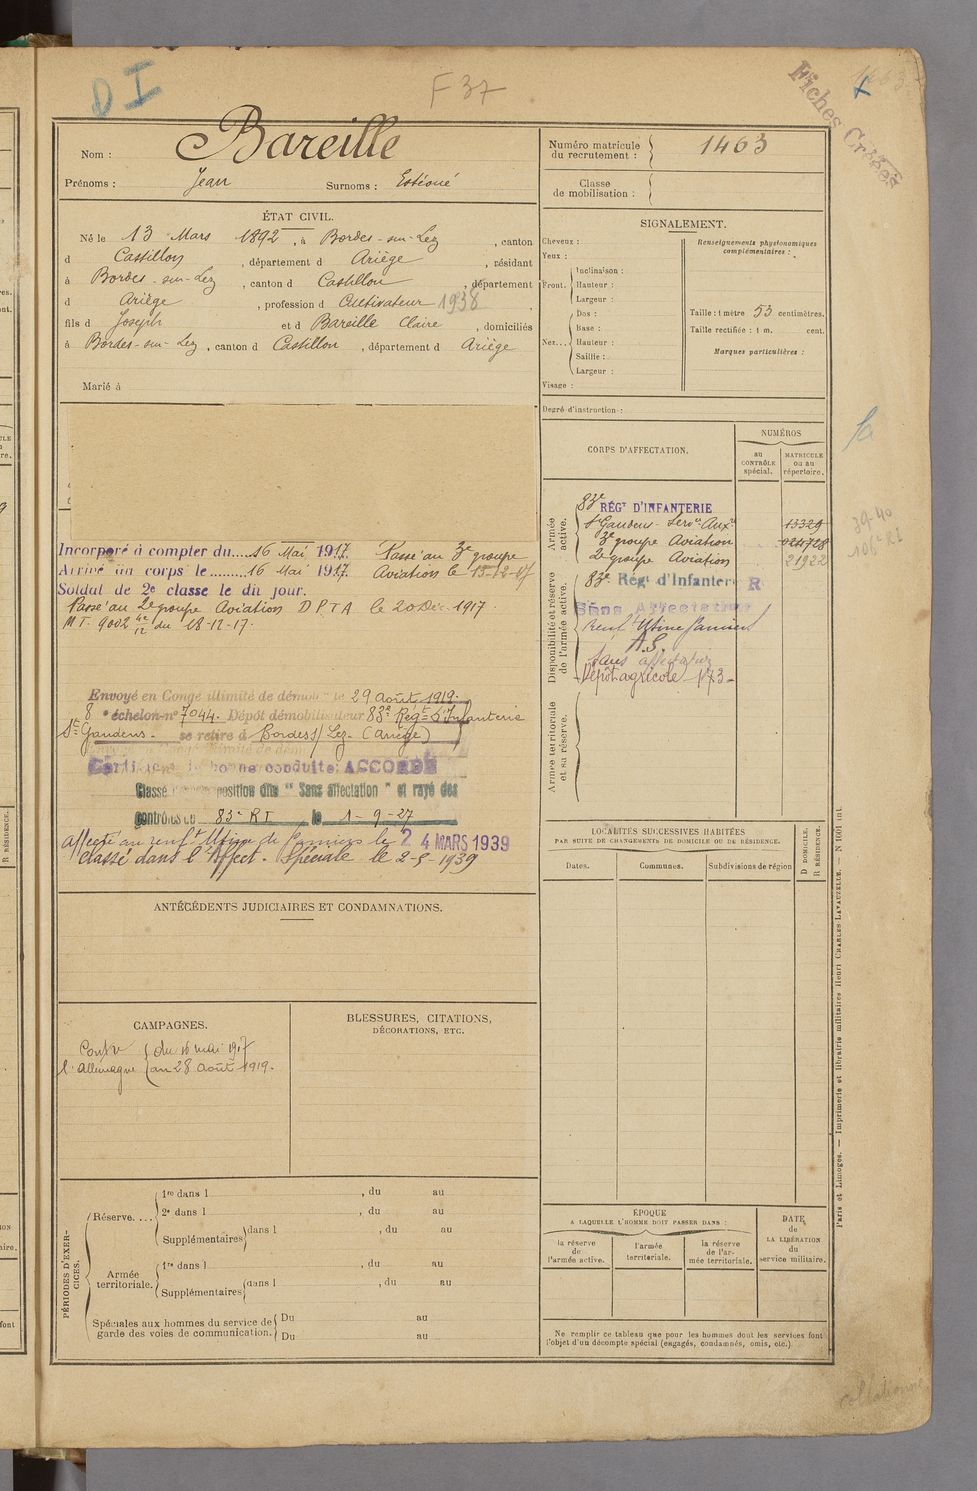 D I
F 37
Fiches Croisées
Nom : Bareille
Prénoms : Jean Surnoms : Estéoué
Numéro matricule du recrutement : 1463
Classe de mobilisation :
ÉTAT CIVIL.
Né le 13 Mars 1892, à Bordes-sur-Lez, canton
d Castillon, département d Ariège, résidant
à Bordes-sur-Lez, canton d Castillon, département
d Ariège, profession d Cultivateur 1938,
fils d Joseph et d Bareille Claire, domiciliés
à Bordes-sur-Lez, canton d Castillon, département d Ariège
Marié à
SIGNALEMENT.
Cheveux :
Yeux :
Front. Inclinaison :
Hauteur :
Largeur :
Nez... Dos :
Base :
Hauteur :
Saillie :
Largeur :
Visage :
Renseignements physionomiques complémentaires :
Taille : 1 mètre 53 centimètres.
Taille rectifiée : 1 m. cent.
Marques particulières :
Degré d'instruction :
Incorporé à compter du....16 Mai 1917. Passé au 3e groupe
Arrivé au corps le.........16 Mai 1917. Aviation le 15-12-17
Soldat de 2e classe le dit jour.
Passé au 2e groupe Aviation D P T A le 20 Déc. 1917.
M T. 9002 4e/12 du 18-12-17.
Envoyé en Congé illimité de démob le 29 Août 1919.
8e échelon-no 7044. Dépôt démobilisateur 83e Régt d'Infanterie
St Gaudens. se retire à Bordes s/ Lez. (Ariège)
Certificat de bonne conduite: ACCORDÉ
Classé position dite "Sans affectation" et rayé des
contrôles du 83e RI le 1-9-27
affecté au renft Usine de Pamiers le 24 MARS 1939
classé dans l'Affect. Spéciale le 2-5-1939
CORPS D'AFFECTATION.
NUMÉROS
au CONTRÔLE spécial.
MATRICULE ou au répertoire.
Armée active.
83e RÉGT D'INFANTERIE
St Gaudens - Serv. Auxre 13329
3e groupe Aviation 024728
2e groupe Aviation 21922
Disponibilité et réserve de l'armée active.
83e Régt d'Infanterie R
Sans Affectation
renft Usine Pamiers
A.S.
Sans affectation
Dépôt agricole 173
Armée territoriale et sa réserve.
39-40
106e RI
LOCALITÉS SUCCESSIVES HABITÉES
PAR SUITE DE CHANGEMENTS DE DOMICILE OU DE RÉSIDENCE.
Dates.
Communes.
Subdivisions de région
D DOMICILE.
R RÉSIDENCE.
ANTÉCÉDENTS JUDICIAIRES ET CONDAMNATIONS.
CAMPAGNES.
Contre l'Allemagne du 16 mai 1917
au 28 août 1919.
BLESSURES, CITATIONS,
DÉCORATIONS, ETC.
PÉRIODES D'EXERCICES.
Réserve....
1re dans l , du au
2e dans l , du au
Supplémentaires dans l , du au
Armée territoriale.
1re dans l , du au
Supplémentaires dans l , du au
Spéciales aux hommes du service de garde des voies de communication.
Du au
Du au
ÉPOQUE
A LAQUELLE L'HOMME DOIT PASSER DANS :
la réserve de l'armée active.
l'armée territoriale.
la réserve de l'armée territoriale.
DATE de LA LIBÉRATION du service militaire.
Ne remplir ce tableau que pour les hommes dont les services font
l'objet d'un décompte spécial (engagés, condamnés, omis, etc.)
Paris et Limoges. — Imprimerie et librairie militaires Henri CHARLES-LAVAUZELLE. — N 1001 int.
collationné